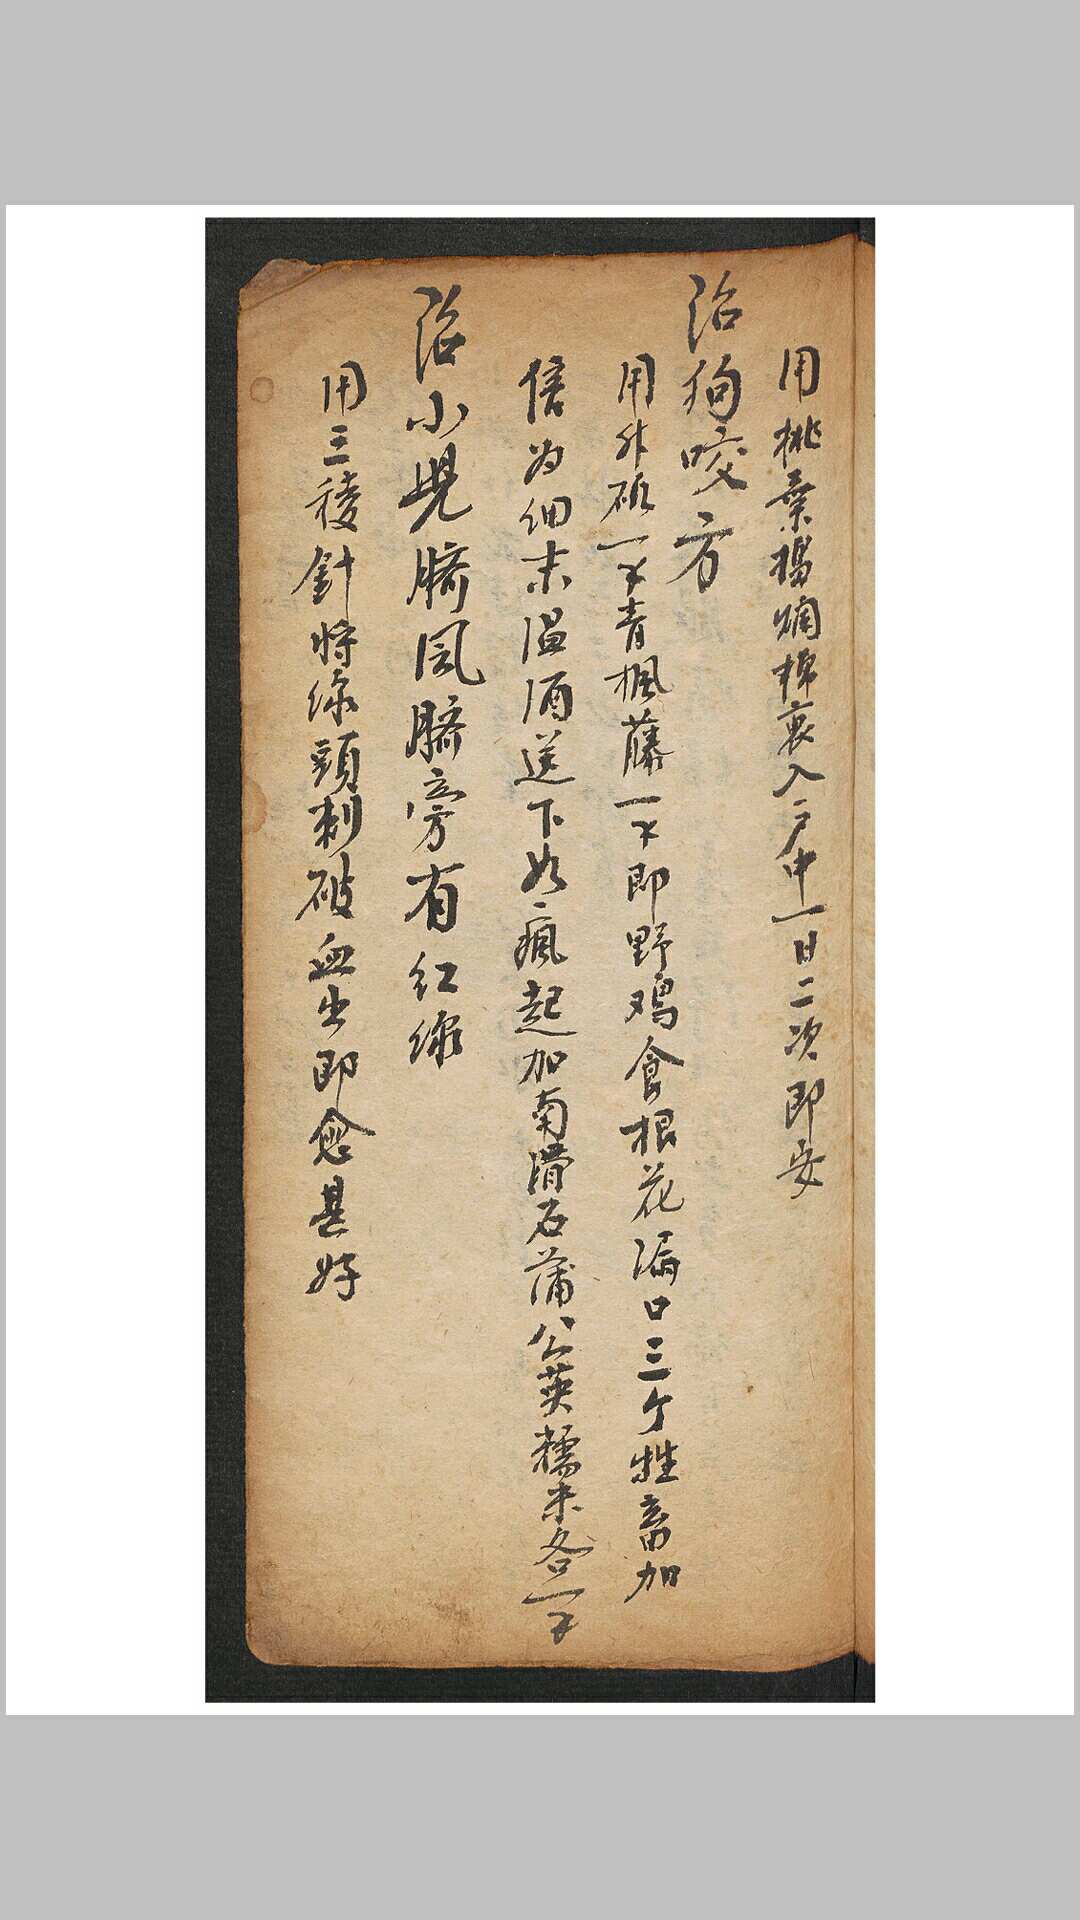 用桃葉搗爛棉裹入户中一日二次即安
治狗咬方
用外砂一子青楓藤一下即野鸡食根花滴口三个牲畜加
倍为细末温酒送下如瘋起加南滑石蒲公英糯米各一子
治小児臍風臍旁有红線
用三稜針将線頭刺破血出即愈甚好